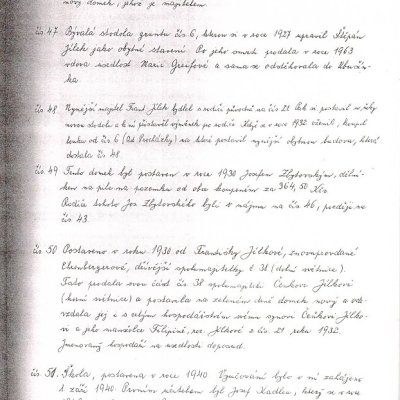 nový domek, jehož je majitelem.
čís 47 Bývalá stodola gruntu čís 6, kterou si v roce 1927 upravil Štěpán
Jílek jako obytné stavení. Po jeho smrti prodala v roce 1963
vdova usedlost Marii Greifové a sama se odstěhovala do
čís 48 Nynější majitel Frant. Jílek bydlel s rodiči původně na čís 21. Pak si postavil
novou stodolu a k ní přistavil výměnek po rodiče. Když se v roce 1932 oženil, koupil
louku od čís 6 (od Procházky) na které postavil nynější obytnou budovu, která
dostala čís 48.
čís 49 Tento domek byl postaven v roce 1930 Josefem Zbytovským, dělní-
kem na pile na pozemku od obce koupeném za 364,50 Kčs.
Rodiče tohoto Jos. Zbytovského byli v nájmu na čís 46, později na
čís 43.
čís 50 Postaveno v roku 1930 od Františky Jílkové, znovuprovdané
Ehrenbergerové, dřívější spolumajitelky č 38 (dolní světnice).
Tato prodala svou část čís 38 spolumajiteli Čeňkovi Jílkovi
(horní světnice) a postavila na zeleném dně domek nový a ode-
vzdala jej i s celým hospodářstvím svému synovi Čeňkovi Jílko-
vi a jeho manželce Filipině, roz. Jílkové z čís. 21 roku 1932.
Jmenovaný hospodaří na usedlosti doposud.
čís 51. Škola, postavena v roce 1940. Vyučování bylo v ní zahájeno
1. září 1940. Prvním učitelem byl Josef Kadlec, který se v roce